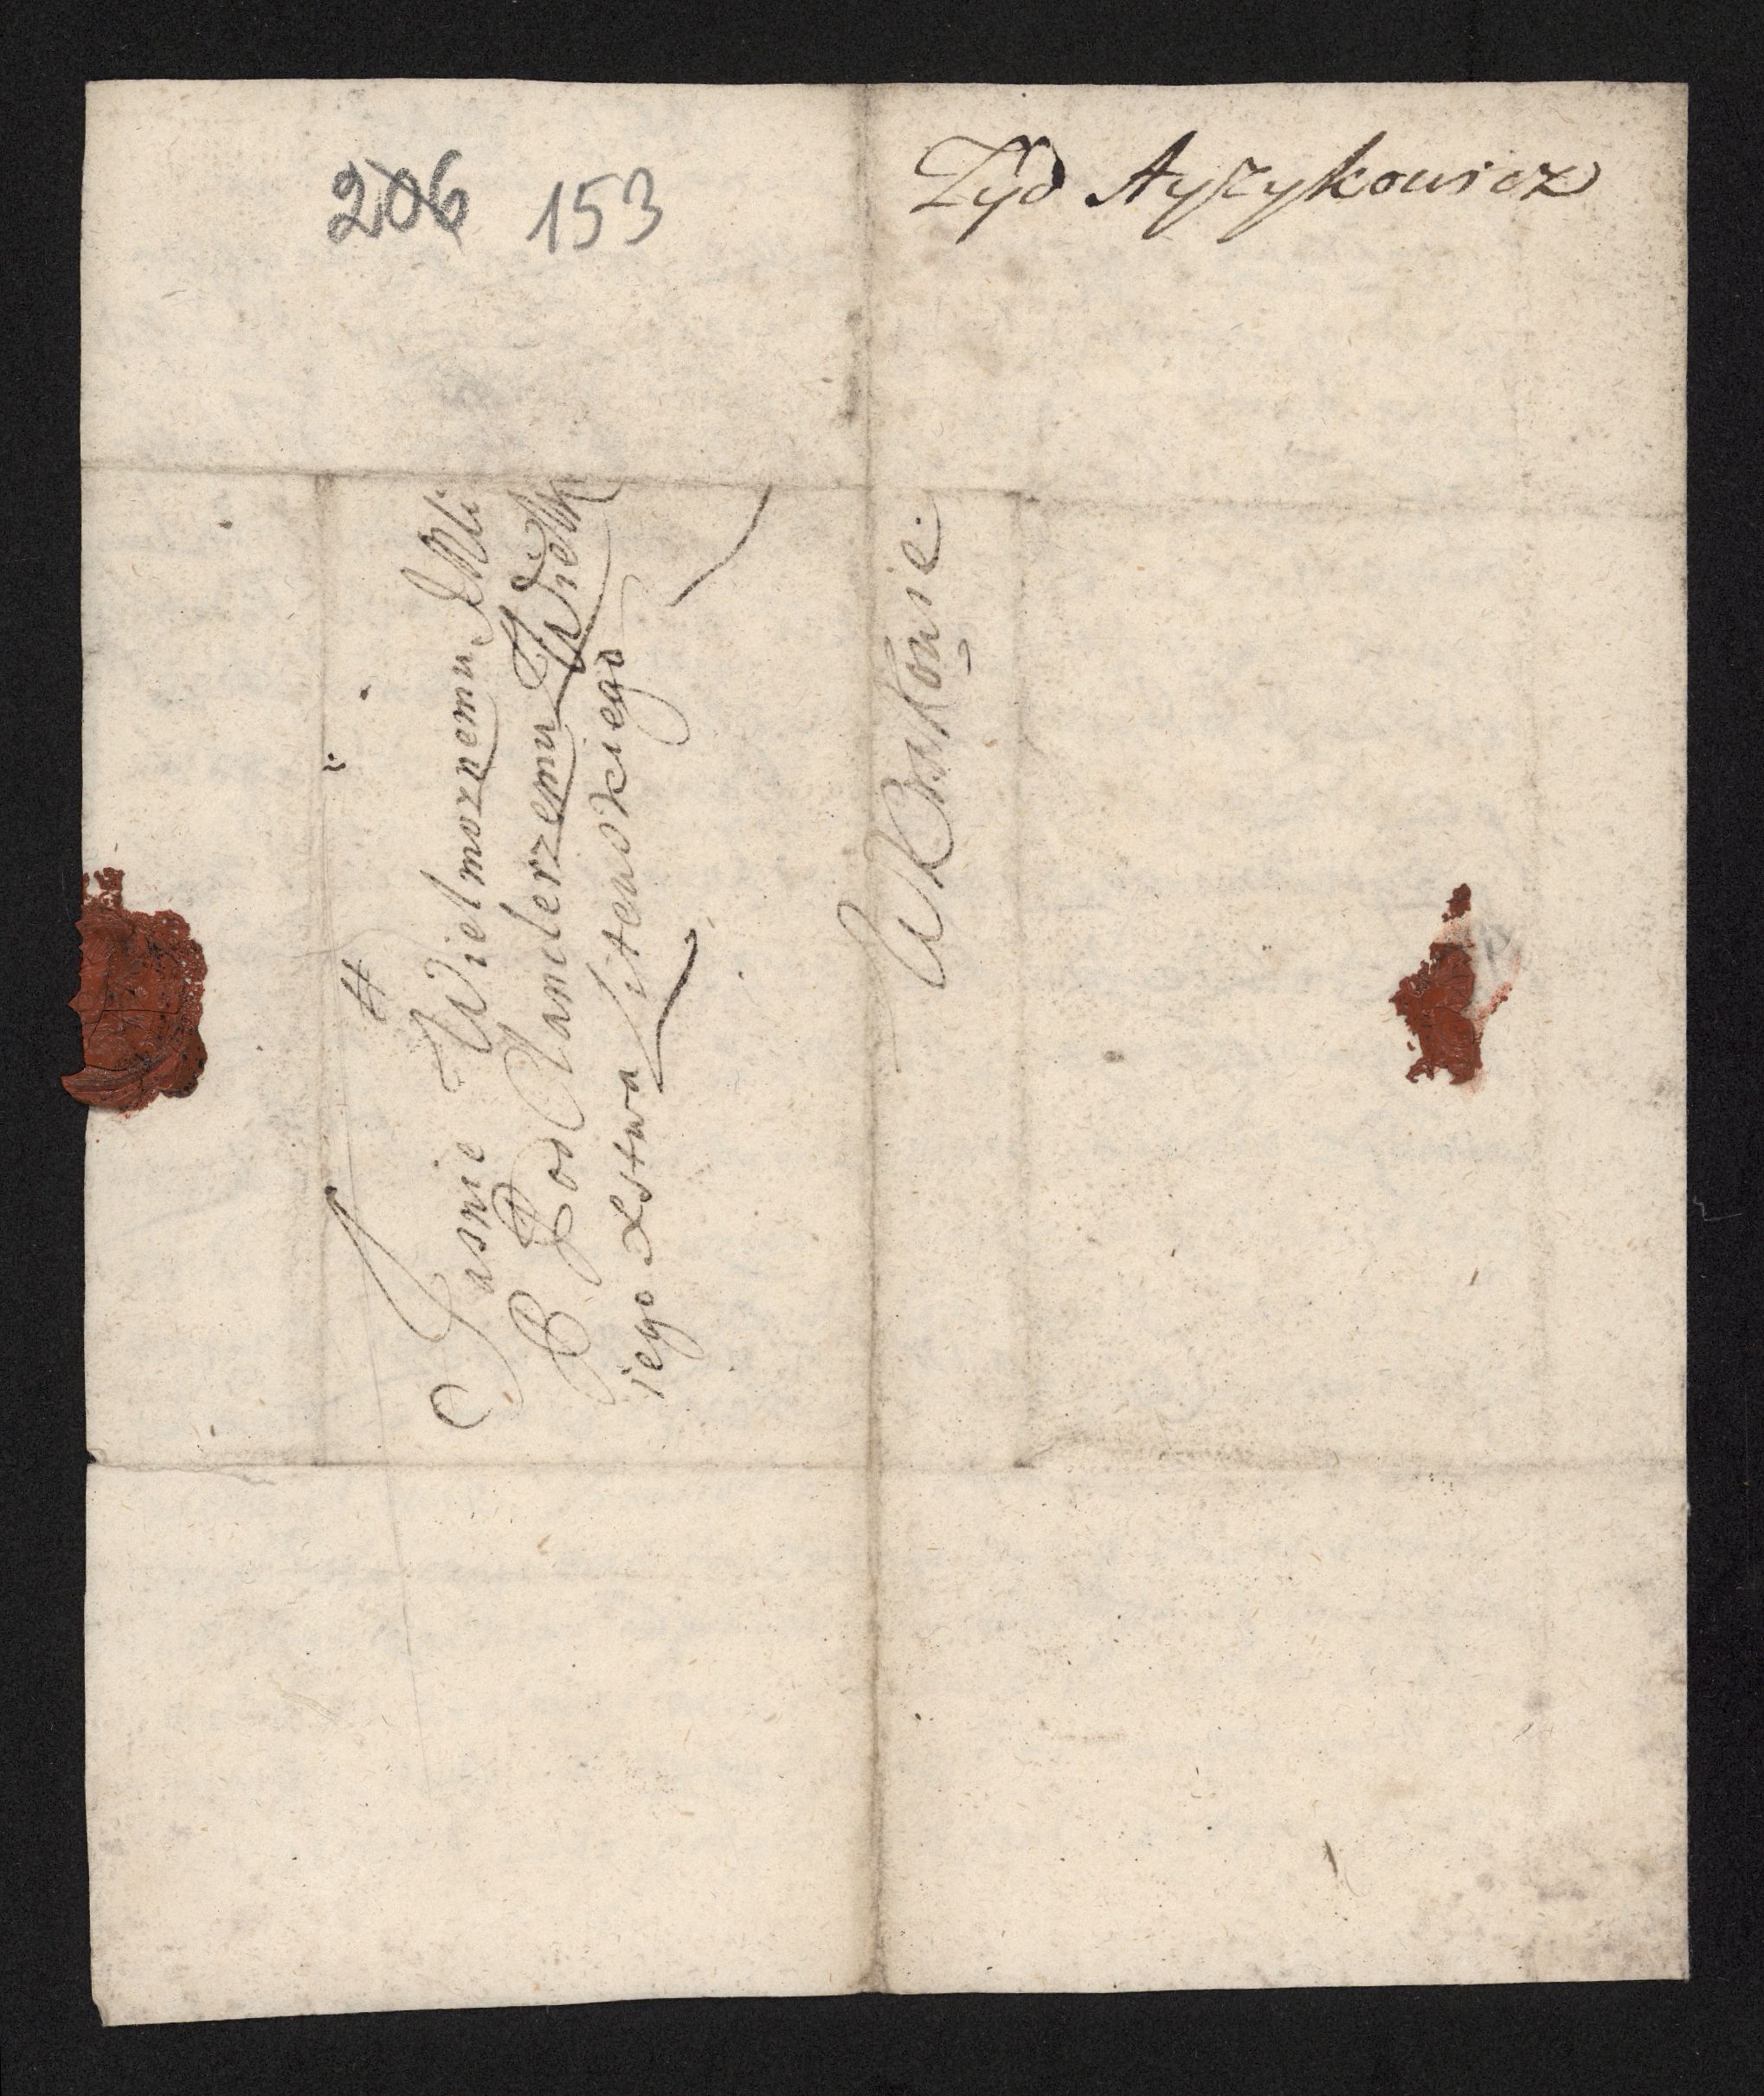 206 153
Żyd Ayzykowicz
Jasnie Wielmoznemu JMCi
P Podkanclerzemu Wielk
iego Xstwa Litewskiego